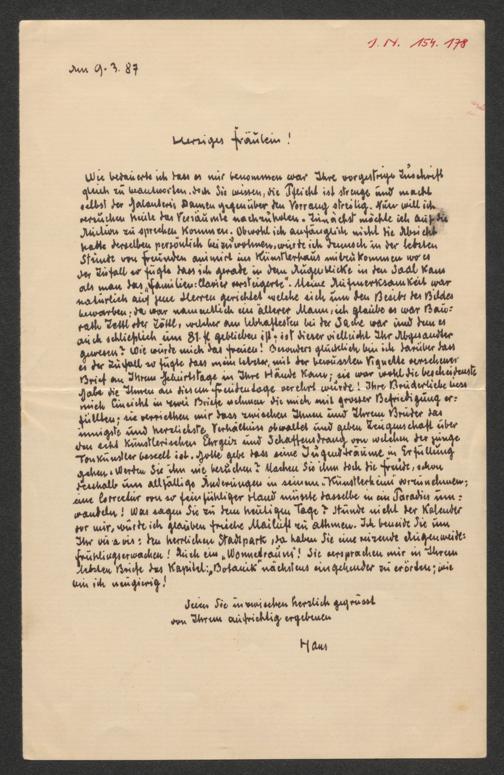 J. N. 154.178
Am 9. 3. 87
Herziges Fräulein!
Wie bedauerte ich dass es mir benommen war Ihre vorgestrige Zuschrift
gleich zu beantworten. doch Sie wissen, die Pflicht ist strenge und macht
selbst der Galanterie Damen gegenüber den Vorrang streitig. Nun will ich
versuchen heute das Versäumte nachzuholen. Zunächst möchte ich auf die
Auction zu sprechen kommen. Obwohl ich anfänglich nicht die Absicht
hatte derselben persönlich beizuwohnen, würde ich dennoch in der letzten
Stunde von Freunden animirt ins Künstlerhaus mitzukommen wo es
der Zufall so fügte dass ich gerade in dem Augenblicke in den Saal kam
als man das "Familien-Clavier versteigerte". Meine Aufmerksamkeit war
natürlich auf jene Herren gerichtet welche sich um den Besitz des Bildes
bewarben, da war namentlich ein älterer Mann, ich glaube es war Bau-
rath Zettl oder Zöttl, welcher am lebhaftesten bei der Sache war und dem es
auch schliesslich um 81 fl geblieben ist; ist dieser vielleicht Ihr Abgesandter
gewesen? Wie würde mich das freuen! Besonders glücklich bin ich darüber dass
es der Zufall so fügte dass mein letzter, mit der bewussten Vignette versehener
Brief an Ihrem Geburtstage in Ihre Hände kam; sie war wohl die bescheidenste
Gabe die Ihnen an diesem Freudentage verehrt würde! Ihre Brüderliche liess
mich Einsicht in zwei Briefe nehmen die mich mit grosser Befriedigung er-
füllten; sie verriethen mir dass zwischen Ihnen und Ihrem Bruder das
innigste und herzlichste Verhältniss obwaltet und geben Zeugenschaft über
den echt künstlerischen Ehrgeiz und Schaffensdrang von welchen der junge
Tonkünstler beseelt ist. Gotte gebe dass seine Jugendträume in Erfüllung
gehen. Werden Sie ihn nie besuchen? Machen Sie ihm doch die Freude, schon
deshalb um allfällige Änderungen in seinem Künstlerheim vorzunehmen;
eine Correctur von so feinfühliger Hand müsste dasselbe in ein Paradies um-
wandeln! Was sagen Sie zu dem heutigen Tage? Stünde nicht der Kalender
vor mir, würde ich glauben frische Mailuft zu athmen. Ich beneide Sie um
Ihr vis a vis: den herrlichen Stadtpark, da haben Sie eine reizende Augenweide:
Frühlingserwachen! Auch ein "Wonnetraum"! Sie versprachen mir in Ihrem
letzten Briefe das Kapitel: "Botanik" nächstens eingehender zu erörtern; wie
bin ich neugierig!
Seien Sie inzwischen herzlich gegrüsst
von Ihrem aufrichtig ergebenen
Hans